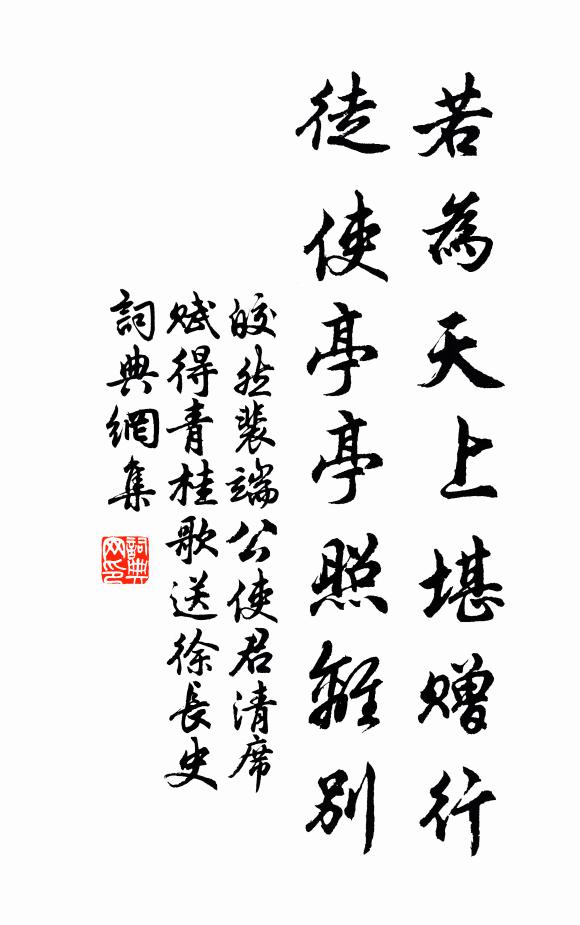 若為天上堪贈行
徒使亭亭照離別
皎然裴端公使君清席
賦得青桂歌送徐長史
詞典網集
詞典
网印